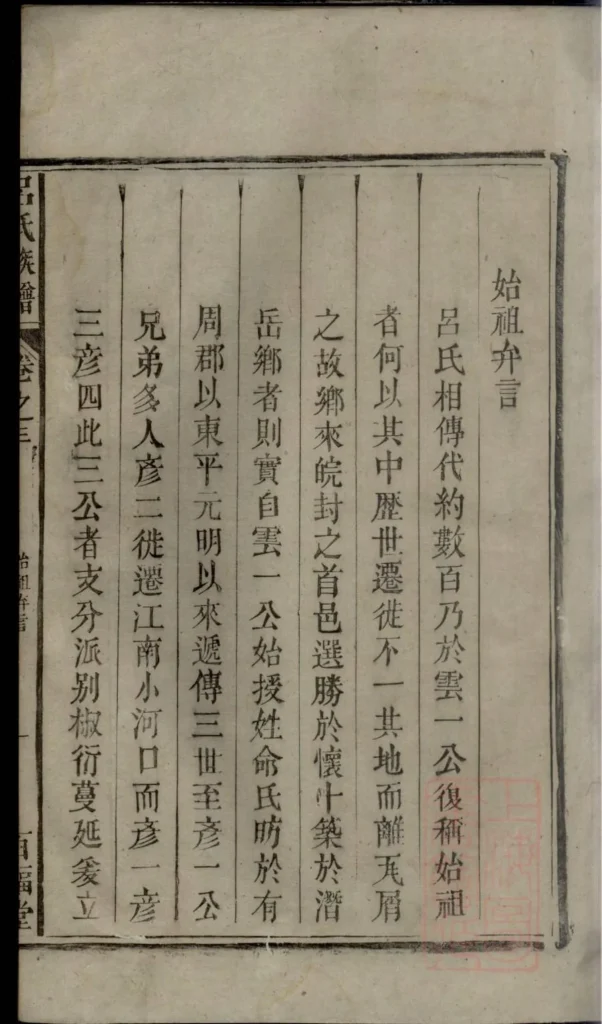 始祖弁言
呂氏相傳代約數百乃於雲一公復稱始祖
者何以其中歷世遷徙不一其地而離瓦屑
之故鄉來皖封之首邑選勝於懷卜築於潛
岳鄉者則實自雲一公始授姓命氏昉於有
周郡以東平元明以來遞傳三世至彥一公
兄弟多人彥二徙遷江南小河口而彥一彥
三彥四此三公者支分派别椒衍蔓延爰立
呂氏族譜 卷之三 始祖弁言 一 百福堂